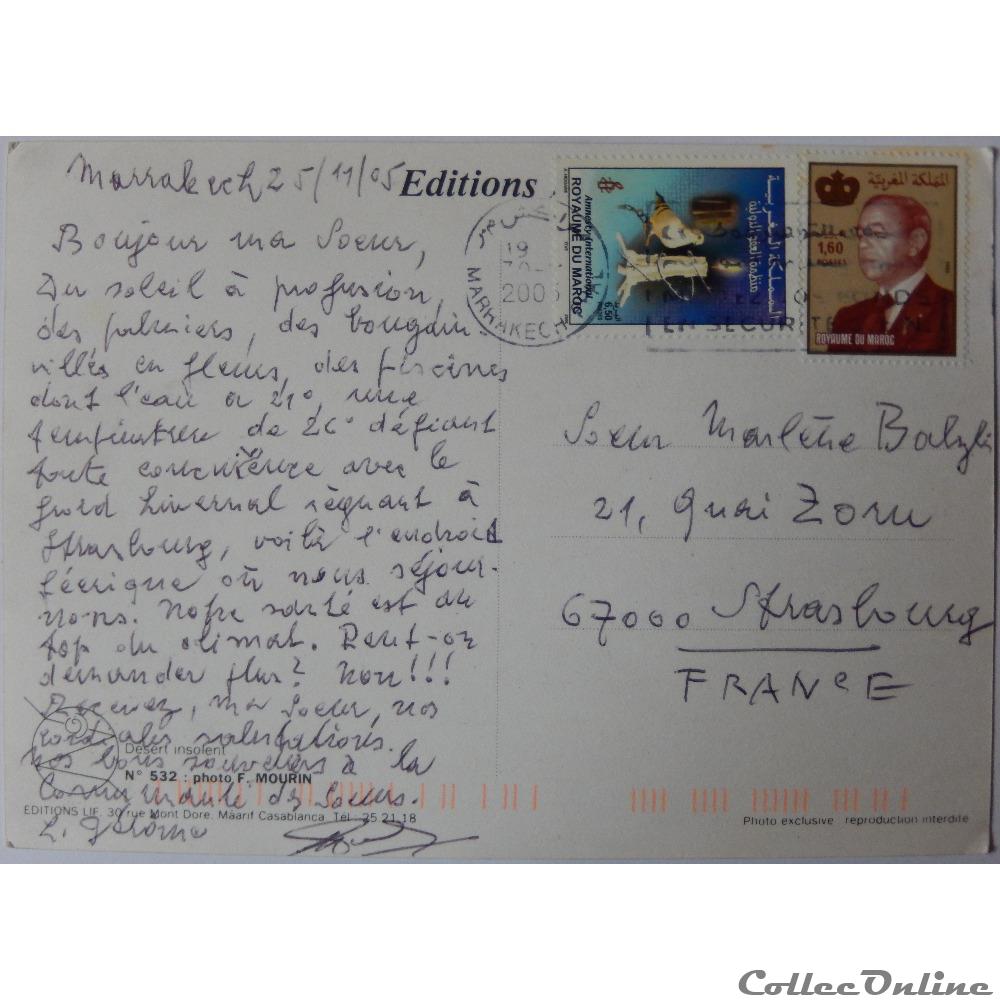 Marrakech 25/11/05
Editions
Boujour ma Soeur,
Du soleil à profusion,
des palmiers, des bougain-
villés en fleurs, des piscines
dont l'eau a 21°, une
température de 26° défiant
toute concurrence avec le
froid hivernal régnant à
Strasbourg, voilà l'endroit
féerique où nous séjour-
nons. Notre santé est au
top du climat. Peut-on
demander plus? Non!!!
Recevez, ma Soeur, nos
cordiales salutations.
Nos bons souvenirs à la
Communauté des Soeurs.
Désert insolent
N° 532 : photo F. MOURIN
EDITIONS LIF. 30 rue Mont Dore. Mâarif Casablanca Tél : 25 21 18
19
2005
MARRAKECH
EN SECURITE
Amnesty International
ROYAUME DU MAROC
6,50
المملكة المغربية
منظمة العفو الدولية
المملكة المغربية
1,60
POSTES
ROYAUME DU MAROC
Soeur Marlène
21, Quai Zorn
67000 Strasbourg
FRANCE
Photo exclusive reproduction interdite
CollecOnline